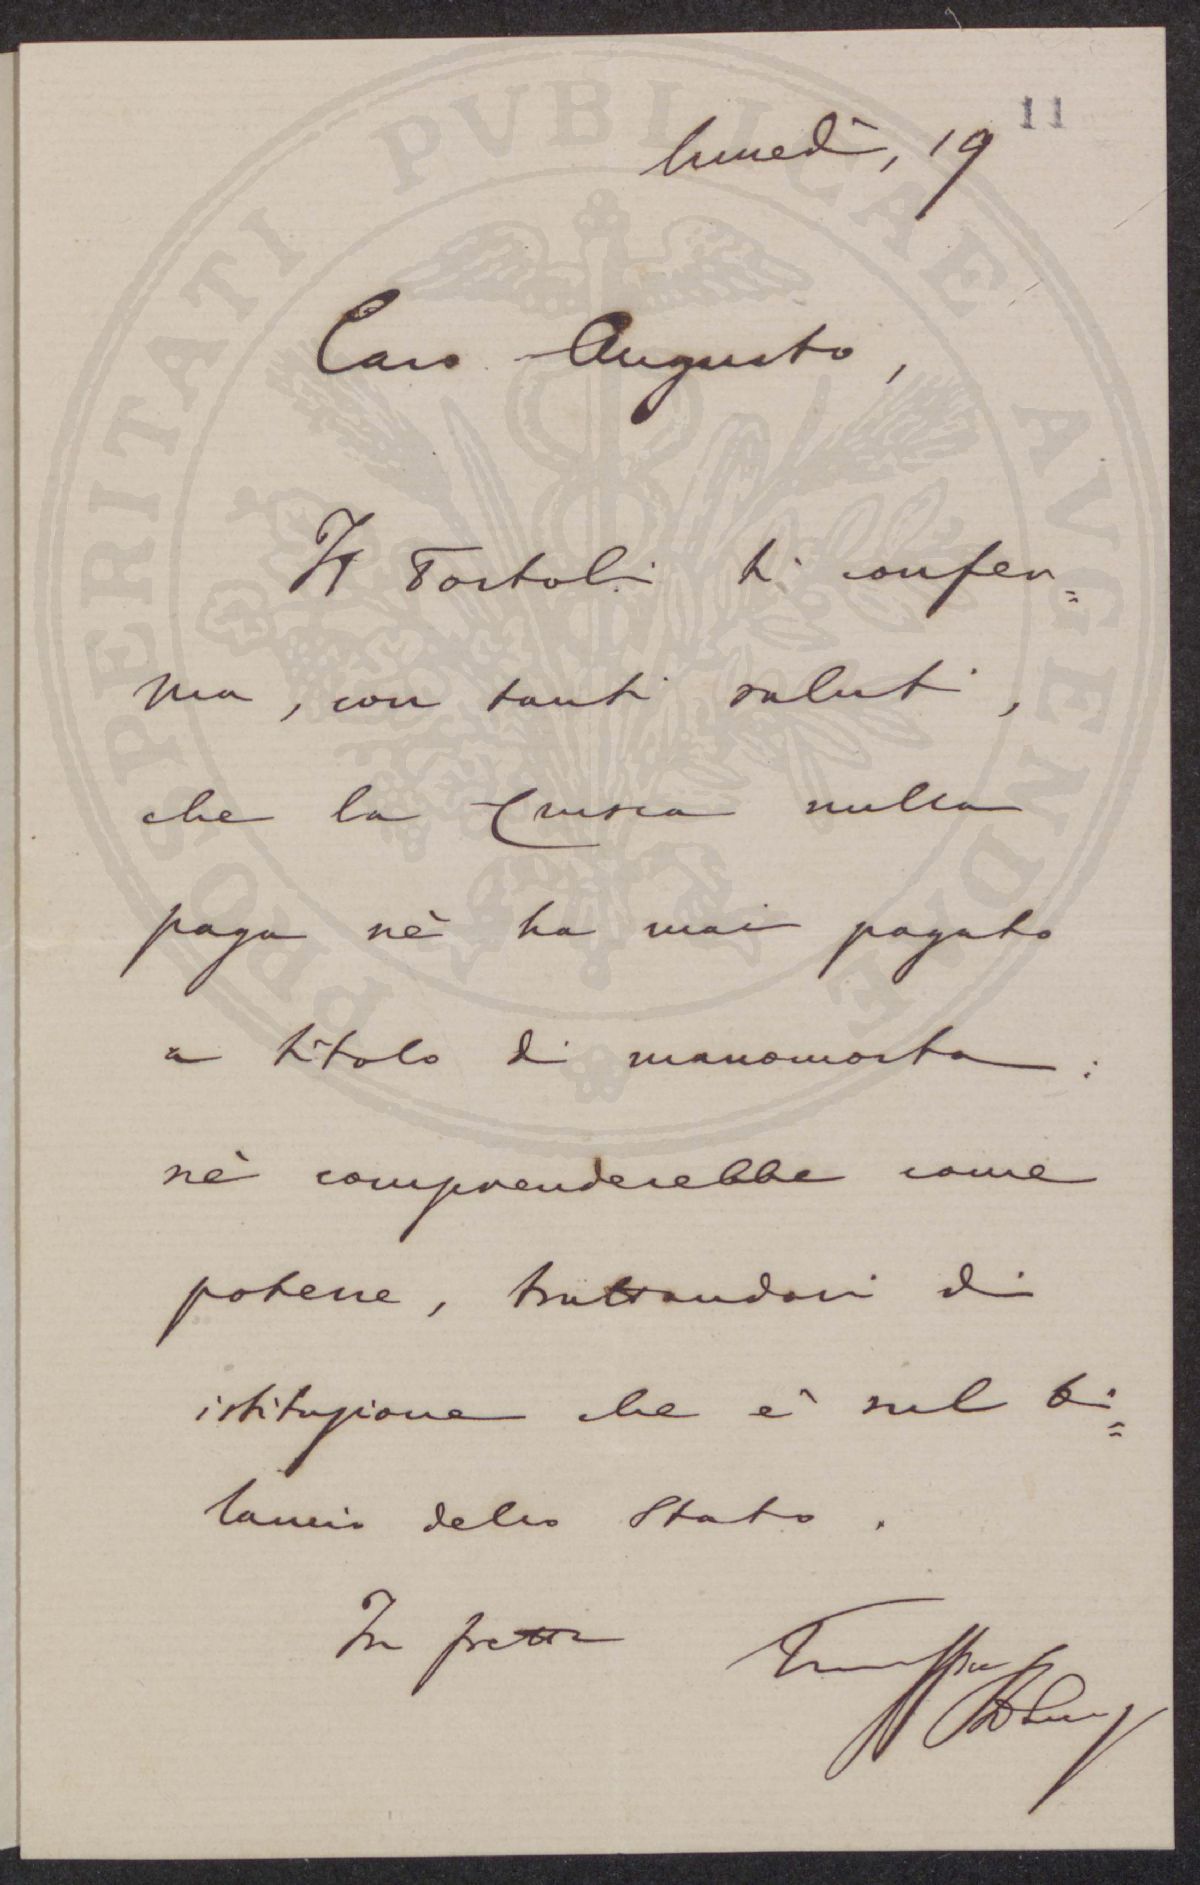 11
lunedì, 19
Caro Augusto,
Il Tortoli ti confer=
ma, con tanti saluti,
che la Crusca nulla
paga nè ha mai pagato
a titolo di manomorta:
nè comprenderebbe come
potesse, trattandosi di
istituzione che è sul bi=
lancio dello Stato.
In fretta
PROSPERITATI PVBLICAE AVGENDAE